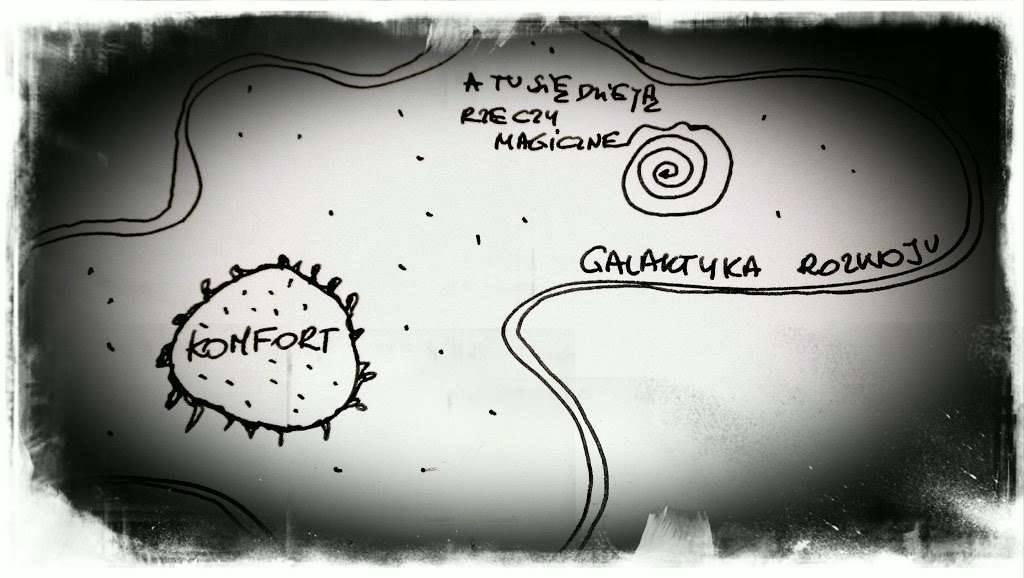 A TU SIĘ DZIEJĄ
RZECZY
MAGICZNE
GALAKTYKA ROZWOJU
KOMFORT